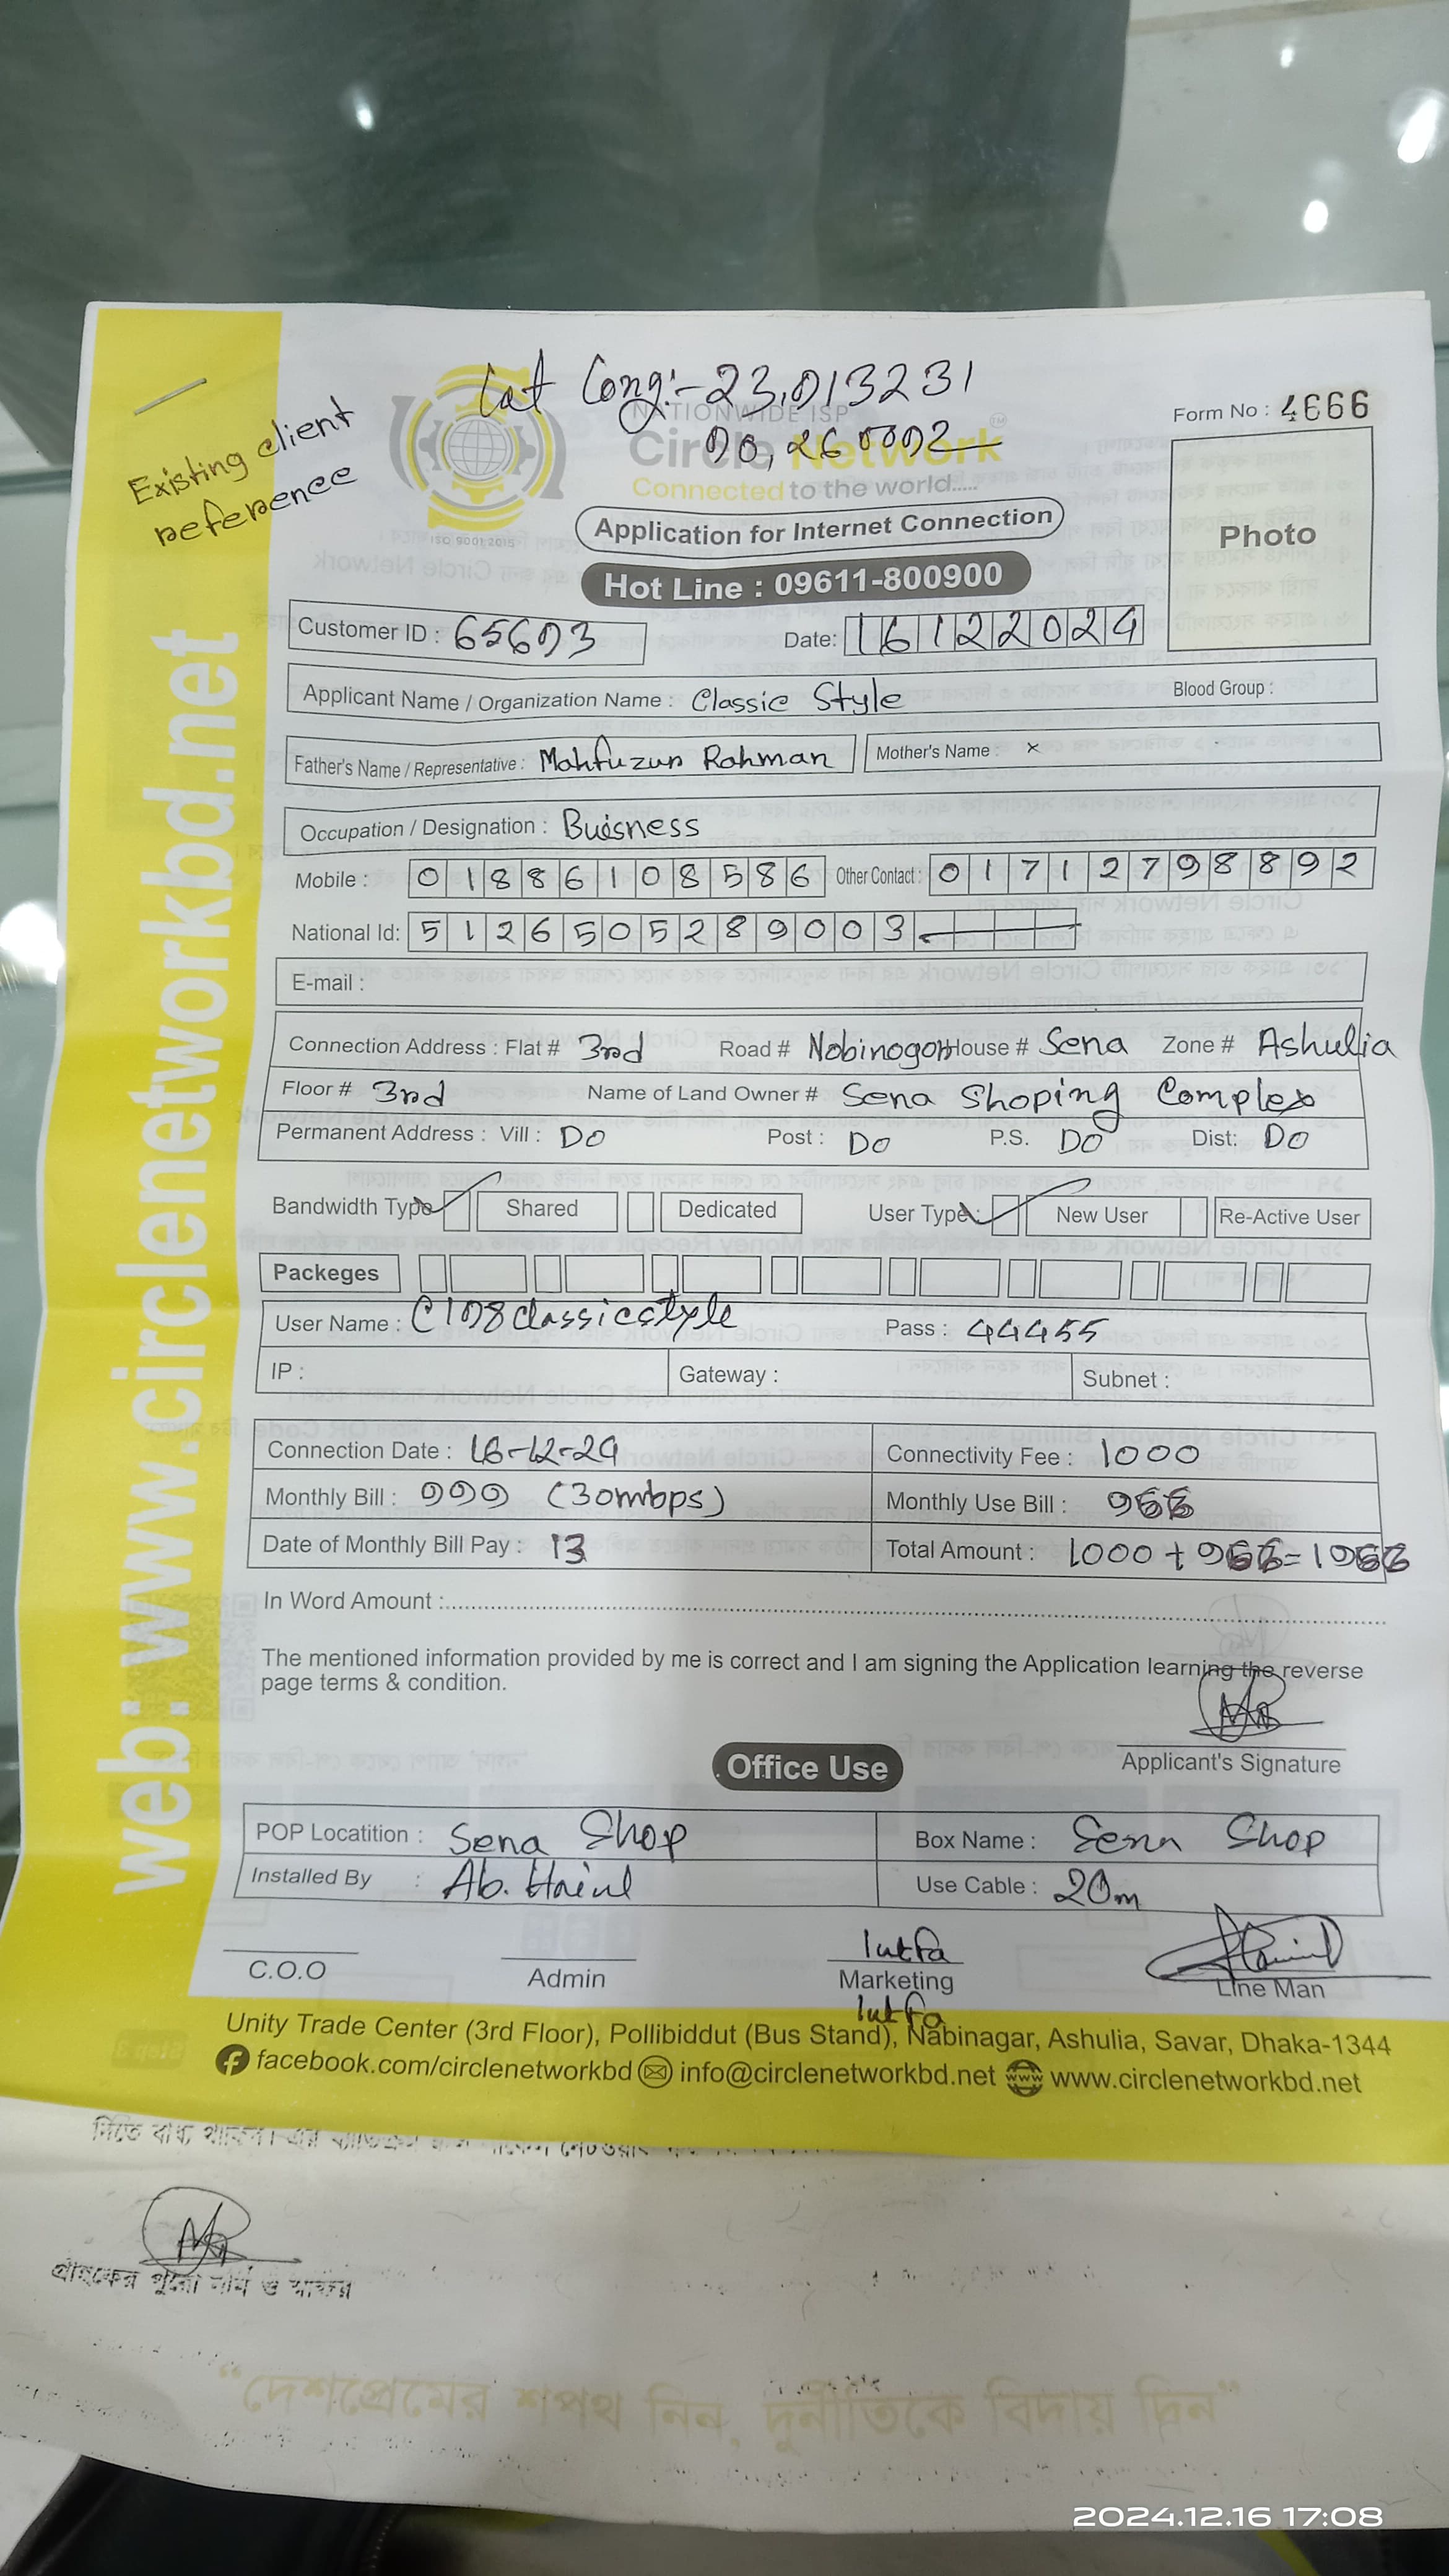 Existing client
reference
Lat Long:-23.913231
90.260992
NATIONWIDE ISP
Circle Network
Connected to the world.....
ISO 9001:2015
Form No : 4666
Photo
Application for Internet Connection
Hot Line : 09611-800900
Customer ID : 65693 Date: 16122024
Applicant Name / Organization Name : Classic Style Blood Group :
Father's Name / Representative : Mahfuzur Rahman Mother's Name : ×
Occupation / Designation : Buisness
Mobile : 01886108586 Other Contact : 01712798892
National Id: 5126505289003
E-mail :
Connection Address : Flat # 3rd Road # Nobinogor House # Sena Zone # Ashulia
Floor # 3rd Name of Land Owner # Sena Shoping Complex
Permanent Address : Vill : DO Post : DO P.S. DO Dist: DO
Bandwidth Type Shared Dedicated User Type : New User Re-Active User
Packeges
User Name : C198classicstyle Pass : 44455
IP : Gateway : Subnet :
Connection Date : 16-12-24 Connectivity Fee : 1000
Monthly Bill : 999 (30mbps) Monthly Use Bill : 966
Date of Monthly Bill Pay : 13 Total Amount : 1000 + 966 = 1966
In Word Amount :
The mentioned information provided by me is correct and I am signing the Application learning the reverse
page terms & condition.
Applicant's Signature
Office Use
POP Locatition : Sena Shop Box Name : Sena Shop
Installed By : Ab. Use Cable : 20m
C.O.O Admin lutfa Marketing Line Man
lutfa
Unity Trade Center (3rd Floor), Pollibiddut (Bus Stand), Nabinagar, Ashulia, Savar, Dhaka-1344
facebook.com/circlenetworkbd info@circlenetworkbd.net www.circlenetworkbd.net
web: www.circlenetworkbd.net
দিতে বাধ্য থাকিব।
গ্রাহকের পুরো নাম ও স্বাক্ষর
“দেশপ্রেমের শপথ নিন, দুর্নীতিকে বিদায় দিন”
2024.12.16 17:08